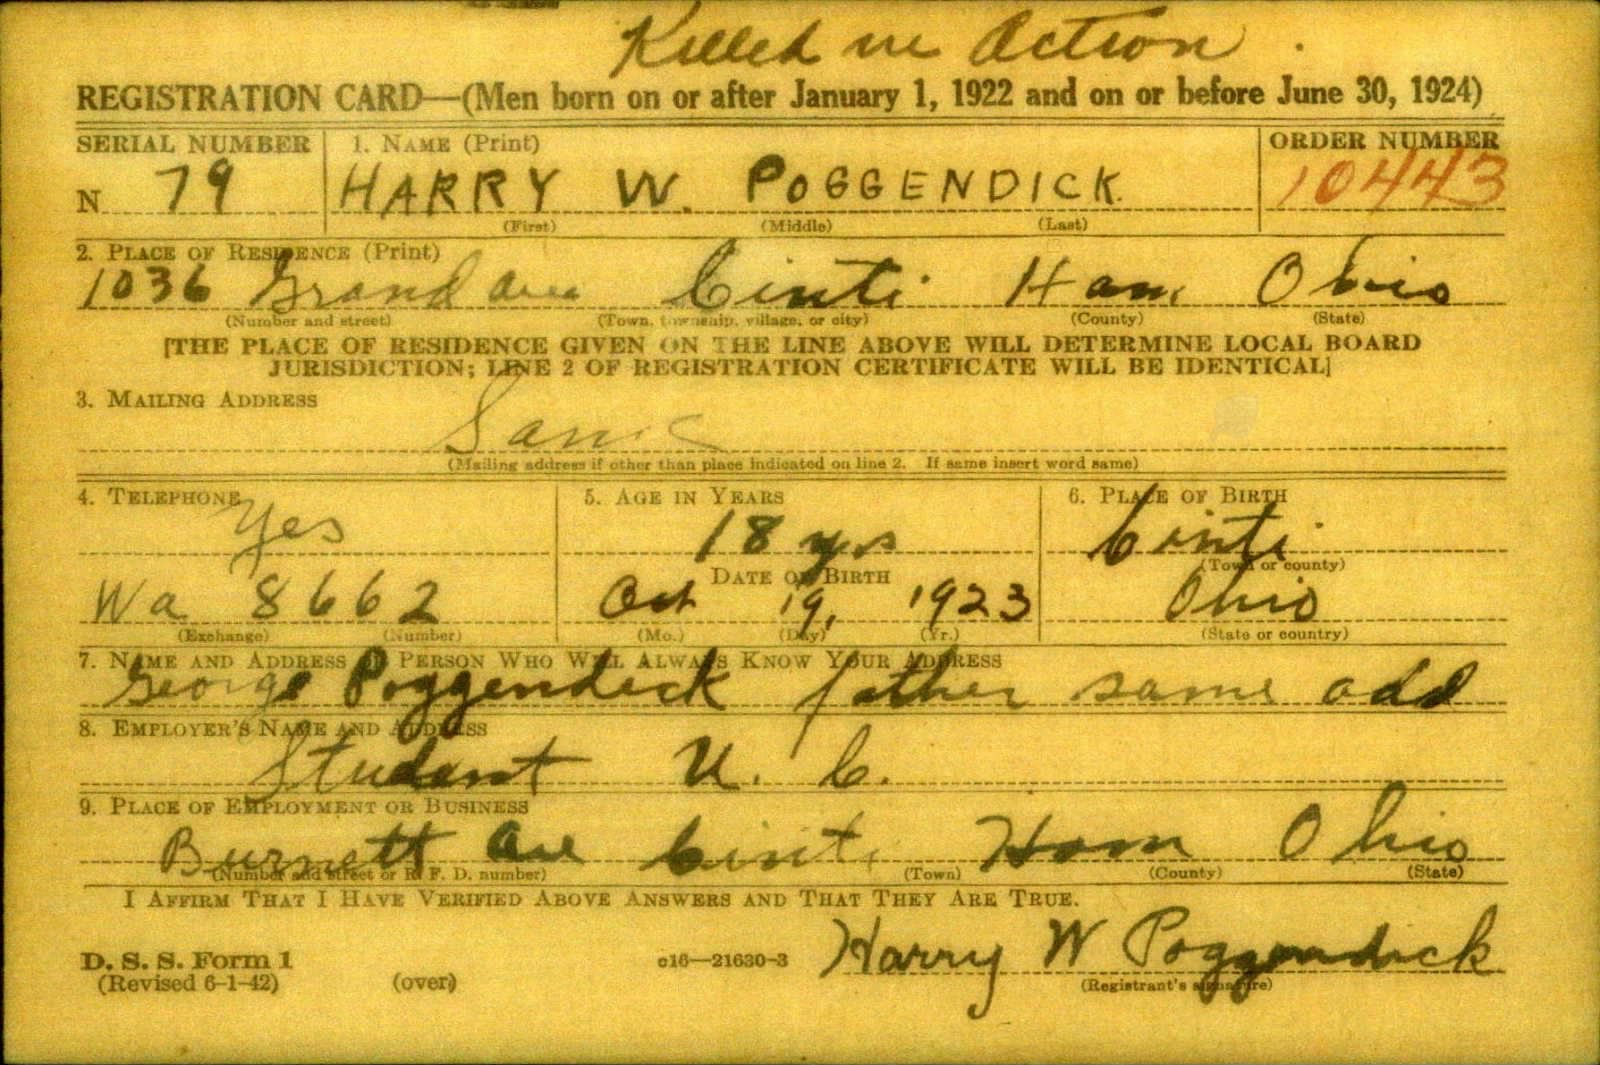 Killed in Action
REGISTRATION CARD—(Men born on or after January 1, 1922 and on or before June 30, 1924)
SERIAL NUMBER 1. NAME (Print) ORDER NUMBER
N 79 HARRY W. POGGENDICK 10443
(First) (Middle) (Last)
2. PLACE OF RESIDENCE (Print)
1036 Grand Ave Cinti Ham. Ohio
(Number and street) (Town, township, village, or city) (County) (State)
[THE PLACE OF RESIDENCE GIVEN ON THE LINE ABOVE WILL DETERMINE LOCAL BOARD
JURISDICTION; LINE 2 OF REGISTRATION CERTIFICATE WILL BE IDENTICAL]
3. MAILING ADDRESS
Same
(Mailing address if other than place indicated on line 2. If same insert word same)
4. TELEPHONE 5. AGE IN YEARS 6. PLACE OF BIRTH
Yes 18 yrs Cinti
(Town or county)
DATE OF BIRTH
Wa 8662 Oct 19, 1923 Ohio
(Exchange) (Number) (Mo.) (Day) (Yr.) (State or country)
7. NAME AND ADDRESS OF PERSON WHO WILL ALWAYS KNOW YOUR ADDRESS
George Poggendick father same add
8. EMPLOYER'S NAME AND ADDRESS
Student U. C.
9. PLACE OF EMPLOYMENT OR BUSINESS
Burnett Ave Cinti Ham Ohio
(Number and street or R. F. D. number) (Town) (County) (State)
I AFFIRM THAT I HAVE VERIFIED ABOVE ANSWERS AND THAT THEY ARE TRUE.
D. S. S. Form 1 c16—21630-3 Harry W Poggendick
(Revised 6-1-42) (over) (Registrant's signature)